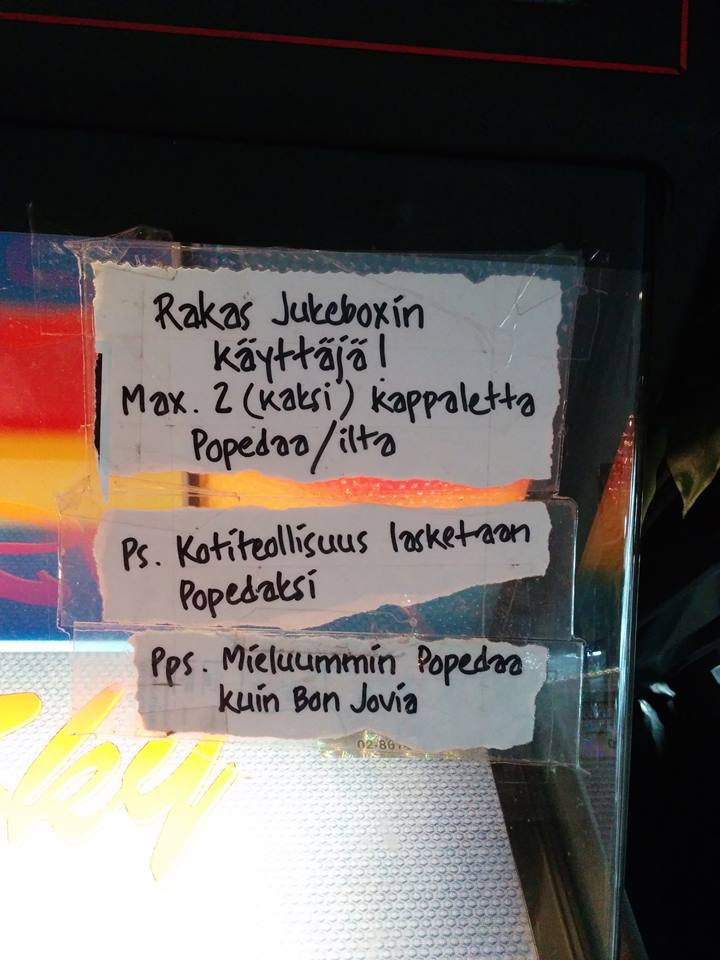 Rakas Jukeboxin
käyttäjä!
Max. 2 (kaksi) kappaletta
Popedaa/ilta
Ps. Kotiteollisuus lasketaan
Popedaksi
Pps. Mieluummin Popedaa
kuin Bon Jovia